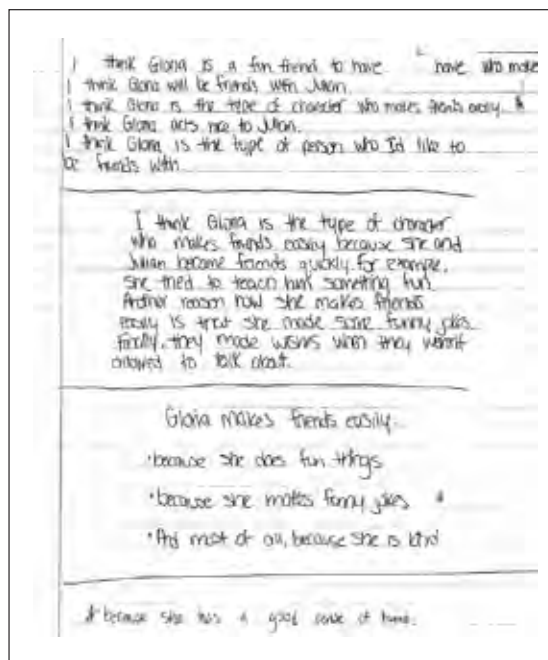 I think Gloria is a fun friend to have have who make
I think Gloria will be friends with Julian.
I think Gloria is the type of character who makes friends easily. *
I think Gloria acts nice to Julian.
I think Gloria is the type of person who I'd like to
be friends with.
I think Gloria is the type of character
who makes friends easily because she and
Julian became friends quickly for example,
she tried to teach him something fun.
Another reason how she makes friends
easily is that she made some funny jokes
Finally, they made wishes when they weren't
allowed to talk about.
Gloria makes friends easily
•because she does fun things
•because she makes funny jokes *
•And most of all, because she is kind
* because she has a good sense of